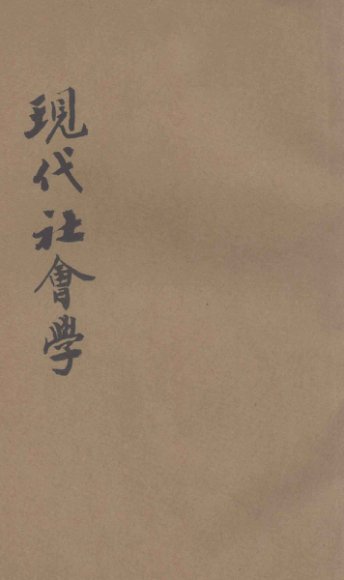 現代社會學